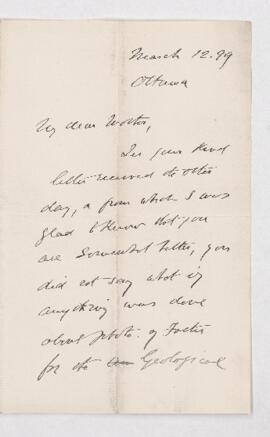 March 12.99
Ottawa
My dear
In your kind
letter received the other
day, & from which I was
glad to know that you
are somewhat better, you
did not say what if
anything was done
about photo. of Foster
for the Geological